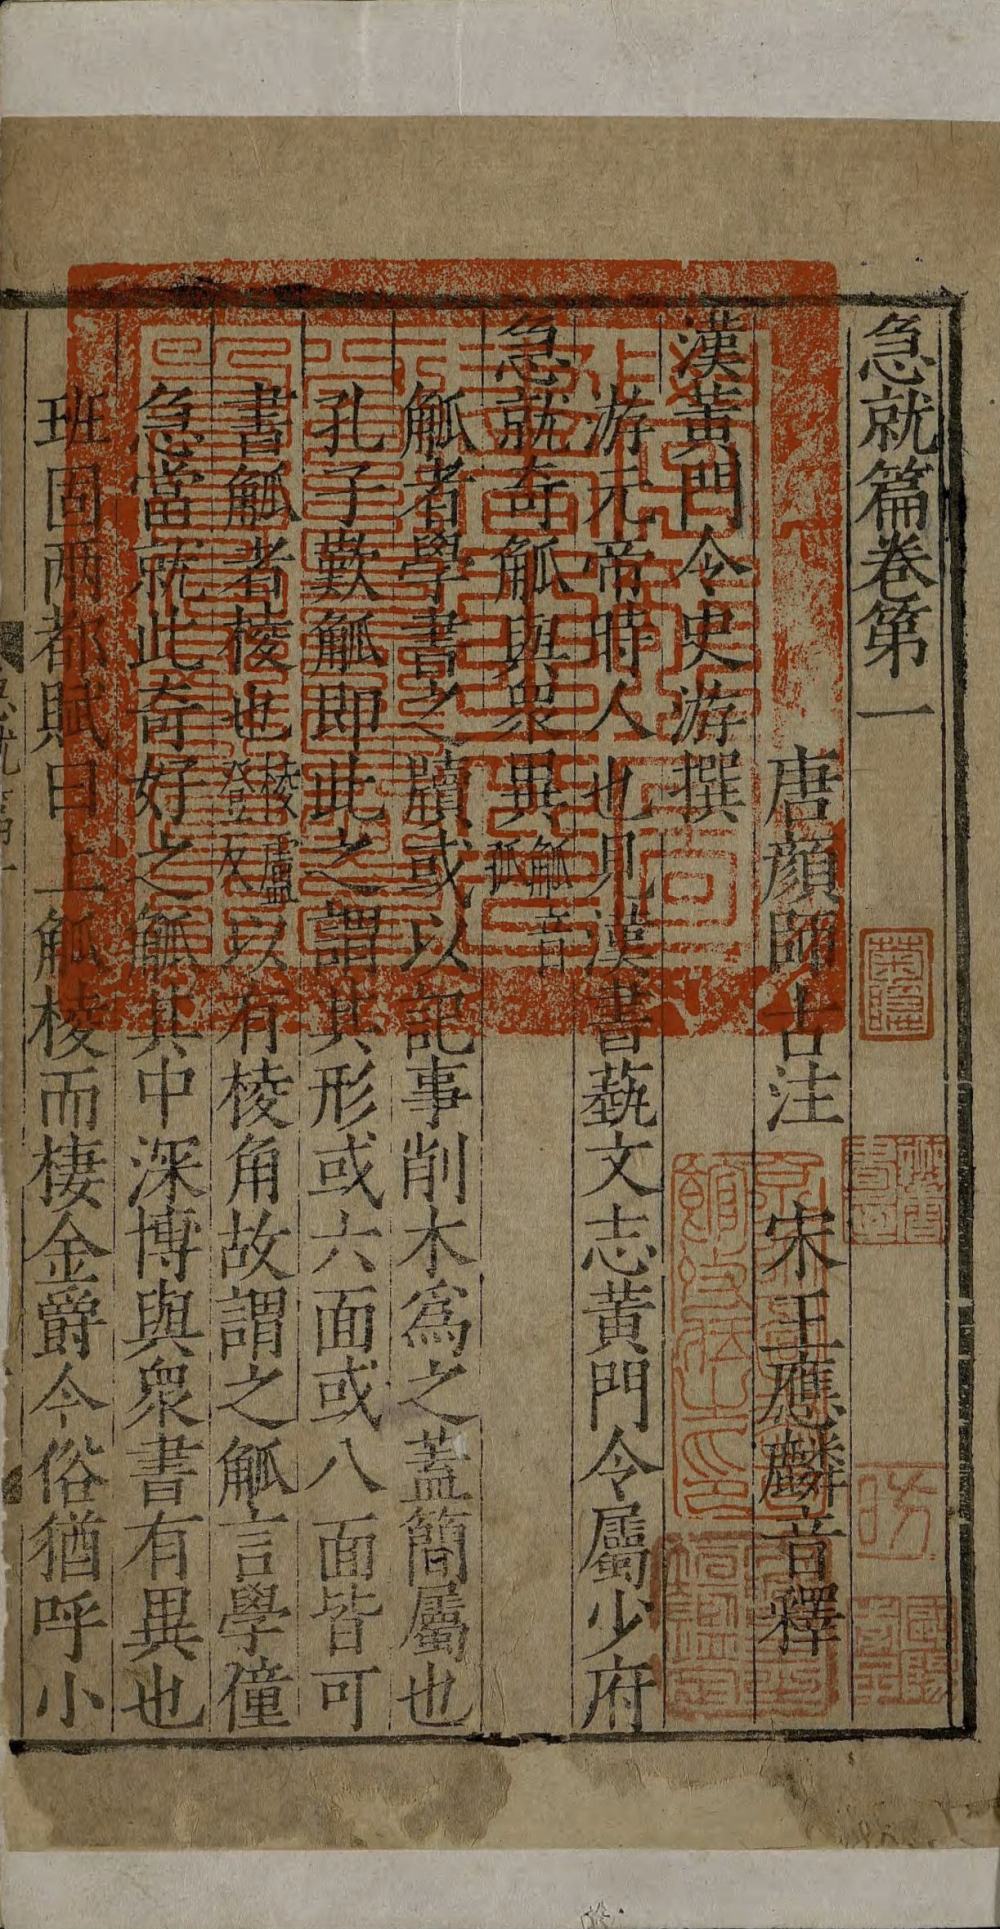 急就篇卷第一
唐顏師古注 宋王應麟音釋
漢黃門令史游撰
游元帝時人也見漢書藝文志黃門令屬少府
急就奇觚與衆異觚音孤
觚者學書之牘或以記事削木爲之蓋簡屬也
孔子歎觚即此之謂其形或六面或八面皆可
書觚者棱也棱盧登反以有棱角故謂之觚言學僮
急當就此奇好之觚其中深博與衆書有異也
班固兩都賦曰上觚棱而棲金爵今俗猶呼小